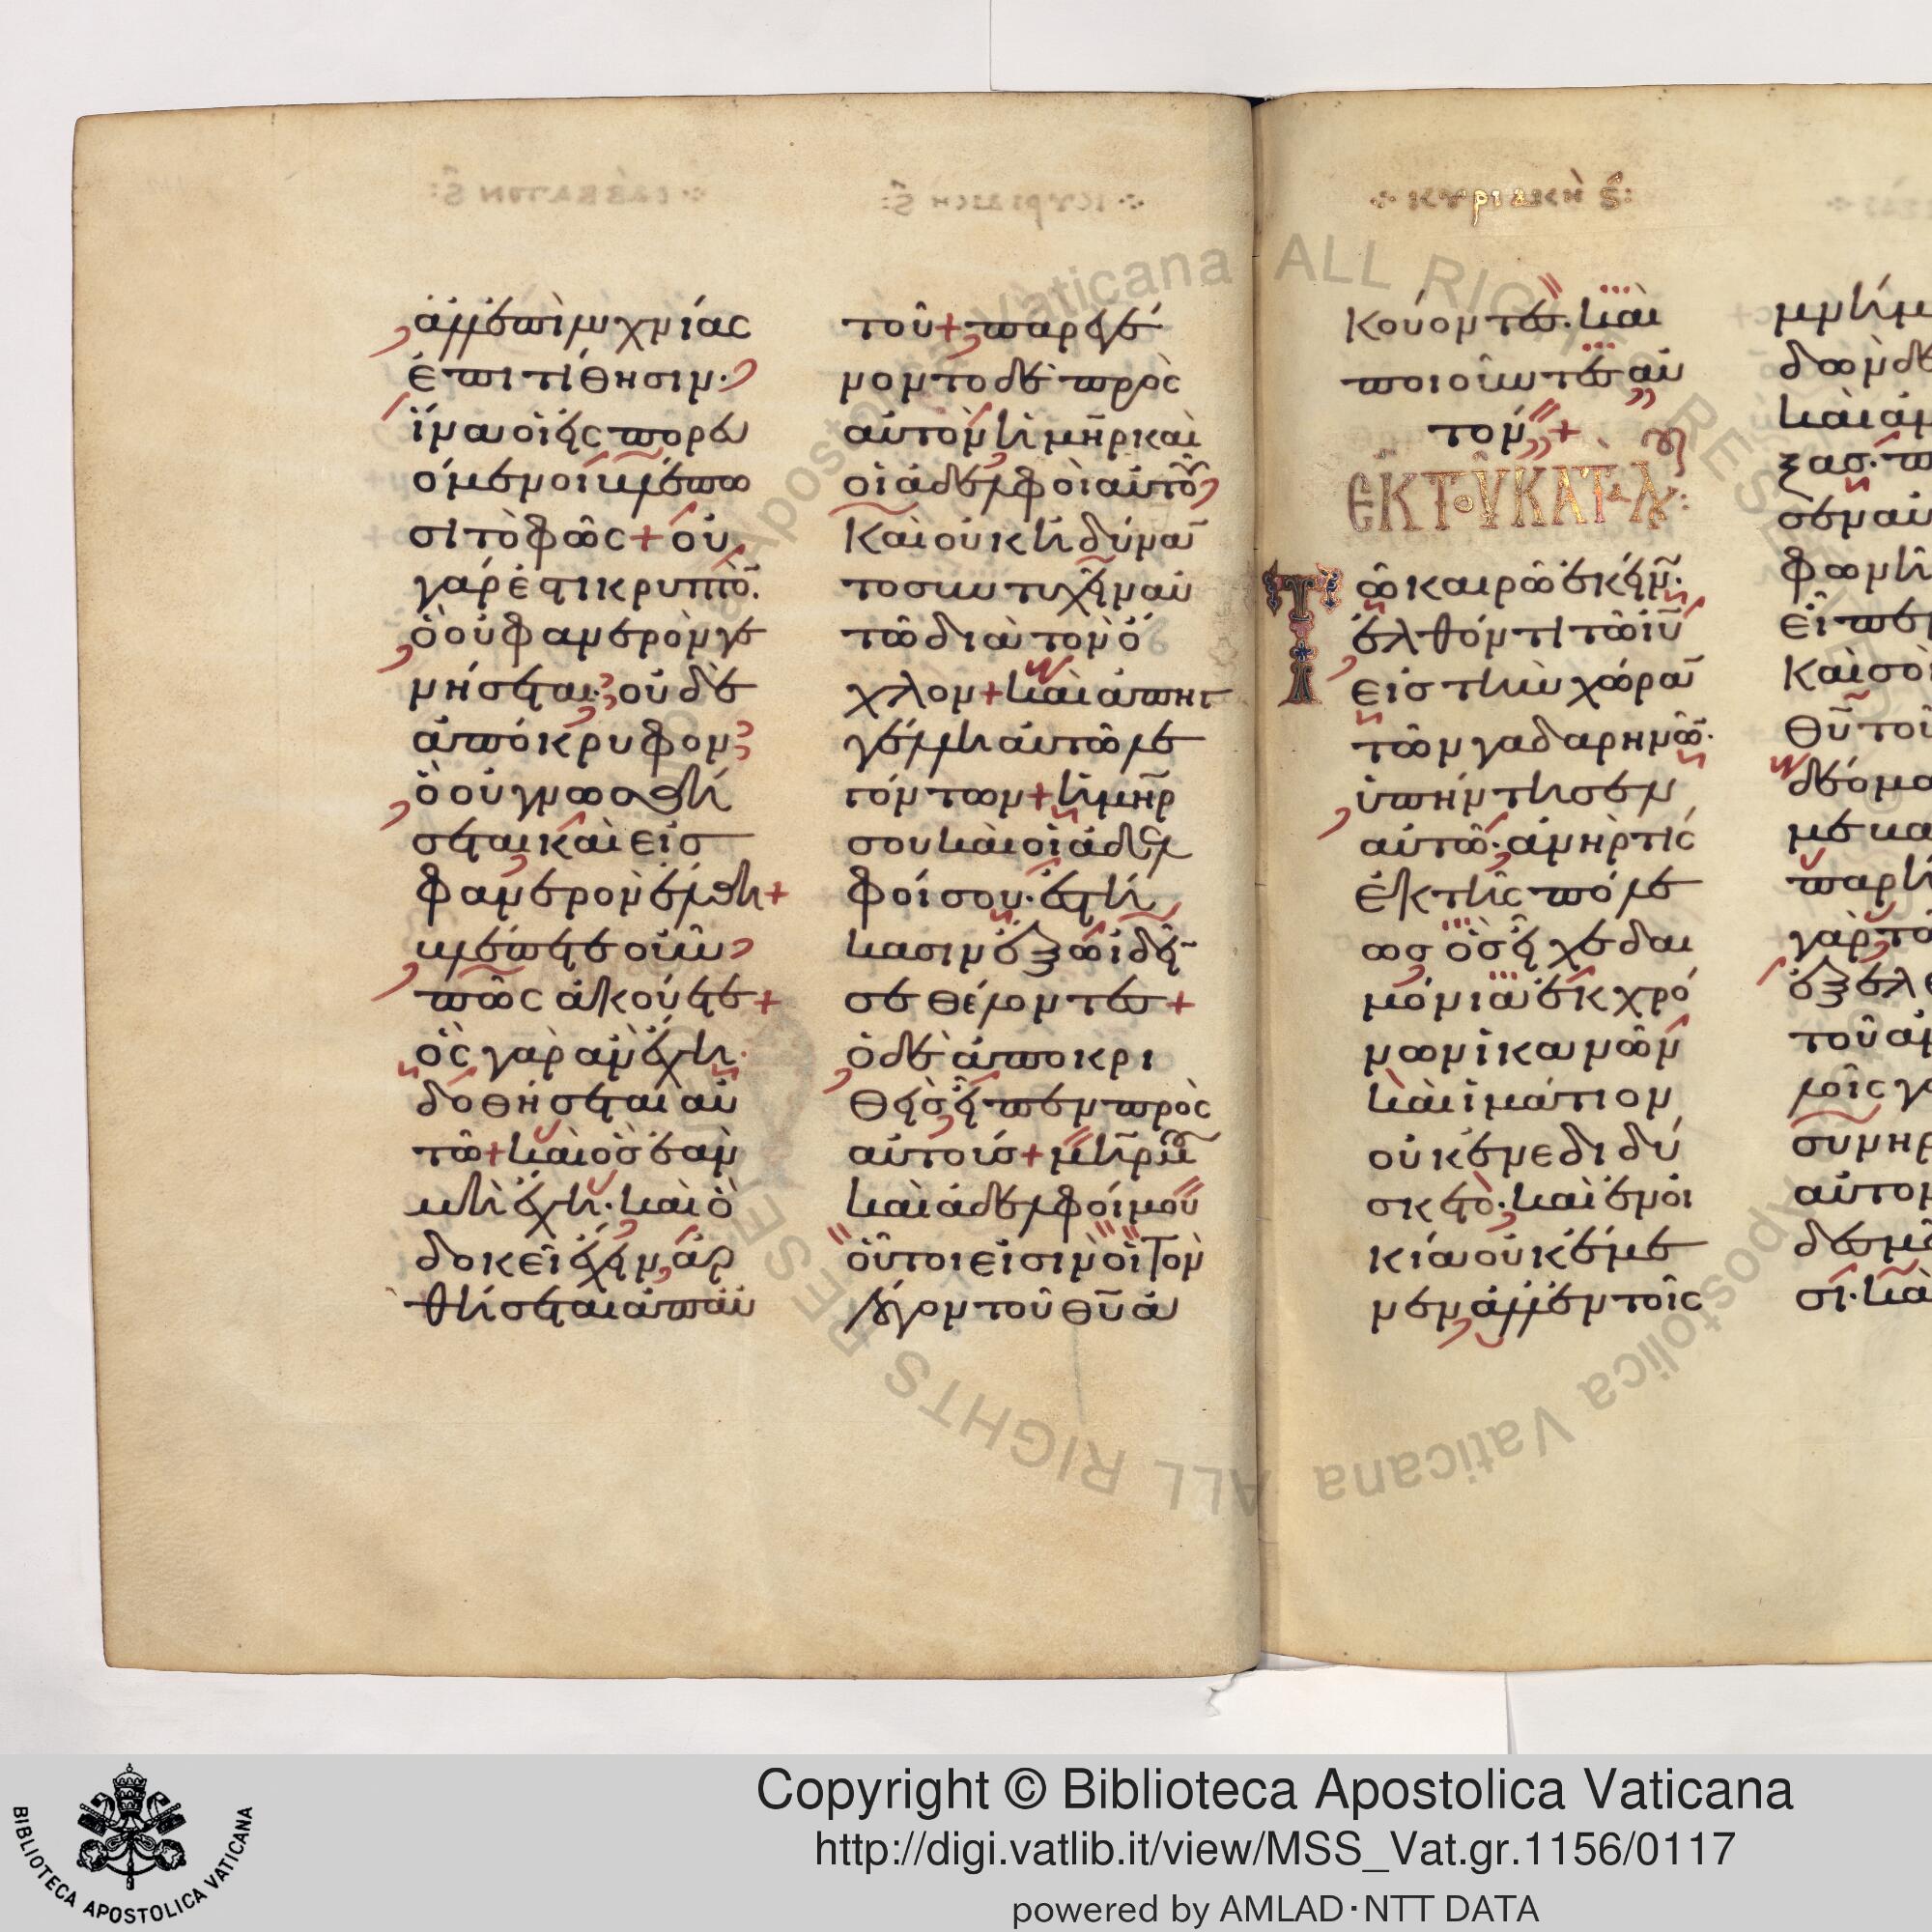 ἀλλ' ἐπὶ λυχνίας
ἐπιτίθησιν·
ἵνα οἱ εἰσπορευ
όμενοι βλέπω
σι τὸ φῶς + οὐ
γάρ ἐστι κρυπτὸ̅.
ὃ οὐ φανερὸν γε
νήσεται· οὐδὲ
ἀπόκρυφον
ὃ οὐ γνωσθή
σεται καὶ εἰσ
φανερὸν ἔλθη +
βλέπετε οὖν
πῶς ἀκούετε +
ὃς γὰρ ἂν ἔχη·
δοθήσεται αὐ
τῶ + καὶ ὃσ ἐὰν
μὴ ἔχη· καὶ ὃ
δοκεῖ ἔχειν, ἀρ
θήσεται ἀπ' αὐ
τοῦ + παρεγέ
νοντο δὲ πρὸς
αὐτὸν ἡ μη̅ρ καὶ
οἱ ἀδελφοὶ αὐτοῦ
καὶ οὐκ ἠδύνα̅
το συντυχεῖν αὐ
τῶ διὰ τὸν ὄ
χλον + καὶ ἀπηγ
γέλλη αὐτῶ λε
γόντων + ἡ μη̅ρ
σου καὶ οἱ ἀδελ
φοί σου· ἑστή
κασιν ἔξω ἰδεῖ̅
σε θέλοντες +
ὁ δὲ ἀποκρι
θεὶσ εἶπεν πρὸς
αὐτούσ + μή̅ρ μου
καὶ ἀδελφοί μου
οὗτοι εἰσιν οἱ τὸν
λόγον τοῦ θ̅υ̅ ἀ
∻ ΚΥΡΙΑΚῊ Ϛ̅:
κούοντες· καὶ
ποιοῦντες αὐ
τόν +
ΕΚ ΤΟΥ ΚΑΤΑ ΛΟΥ:
Τῶ καιρῶ ἐκείνω·
ἐλθόντι τῶ ι̅υ̅
εἰσ τὴν χώρα̅
τῶν γαδαρηνῶ̅·
ὑπήντησεν
αὐτῶ· ἀνήρ τίς
ἐκ τῆς πόλε
ωσ ὃσ εἶχε δαι
μόνια ἐκ χρό
νων ἱκανῶν
καὶ ἱμάτιον
οὐκ ἐνεδιδύ
σκετο· καὶ ἐν οἰ
κία οὐκ ἔμε
νεν, ἀλλ' ἐν τοῖς
Copyright © Biblioteca Apostolica Vaticana
http://digi.vatlib.it/view/MSS_Vat.gr.1156/0117
powered by AMLAD·NTT DATA
BIBLIOTECA APOSTOLICA VATICANA